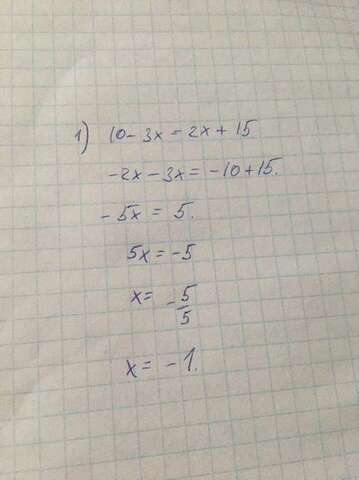 1) 10 - 3x = 2x + 15
-2x - 3x = -10 + 15.
-5x = 5.
5x = -5
x = -5/5
x = -1.